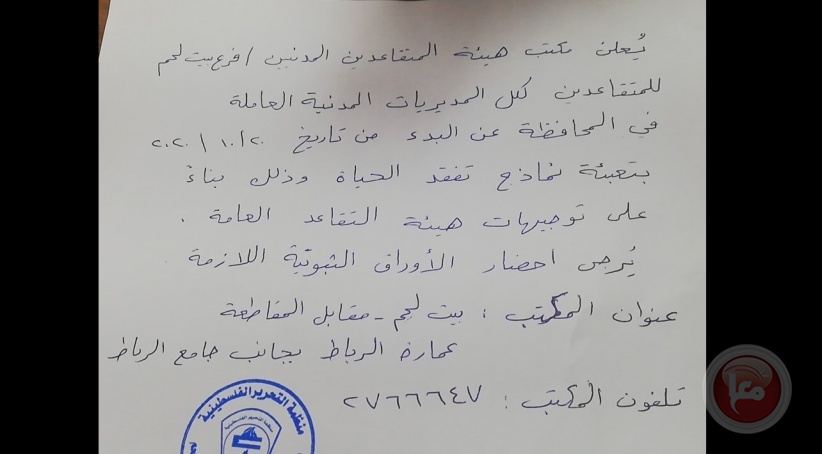 يُعلن مكتب هيئة المتقاعدين المدنيين / فرع بيت لحم
للمتقاعدين لكل المديريات المدنية العاملة
في المحافظة عن البدء من تاريخ ٢٠/١٠/٢٠٢٠
بتعبئة نماذج تفقد الحياة وذلك بناءً
على توجيهات هيئة التقاعد العامة .
يُرجى احضار الأوراق الثبوتية اللازمة
عنوان المكتب : بيت لحم - مقابل المقاطعة
عمارة الرباط بجانب جامع الرباط
تلفون المكتب : ٢٧٦٦٦٤٧
منظمة التحرير الفلسطينية
معا